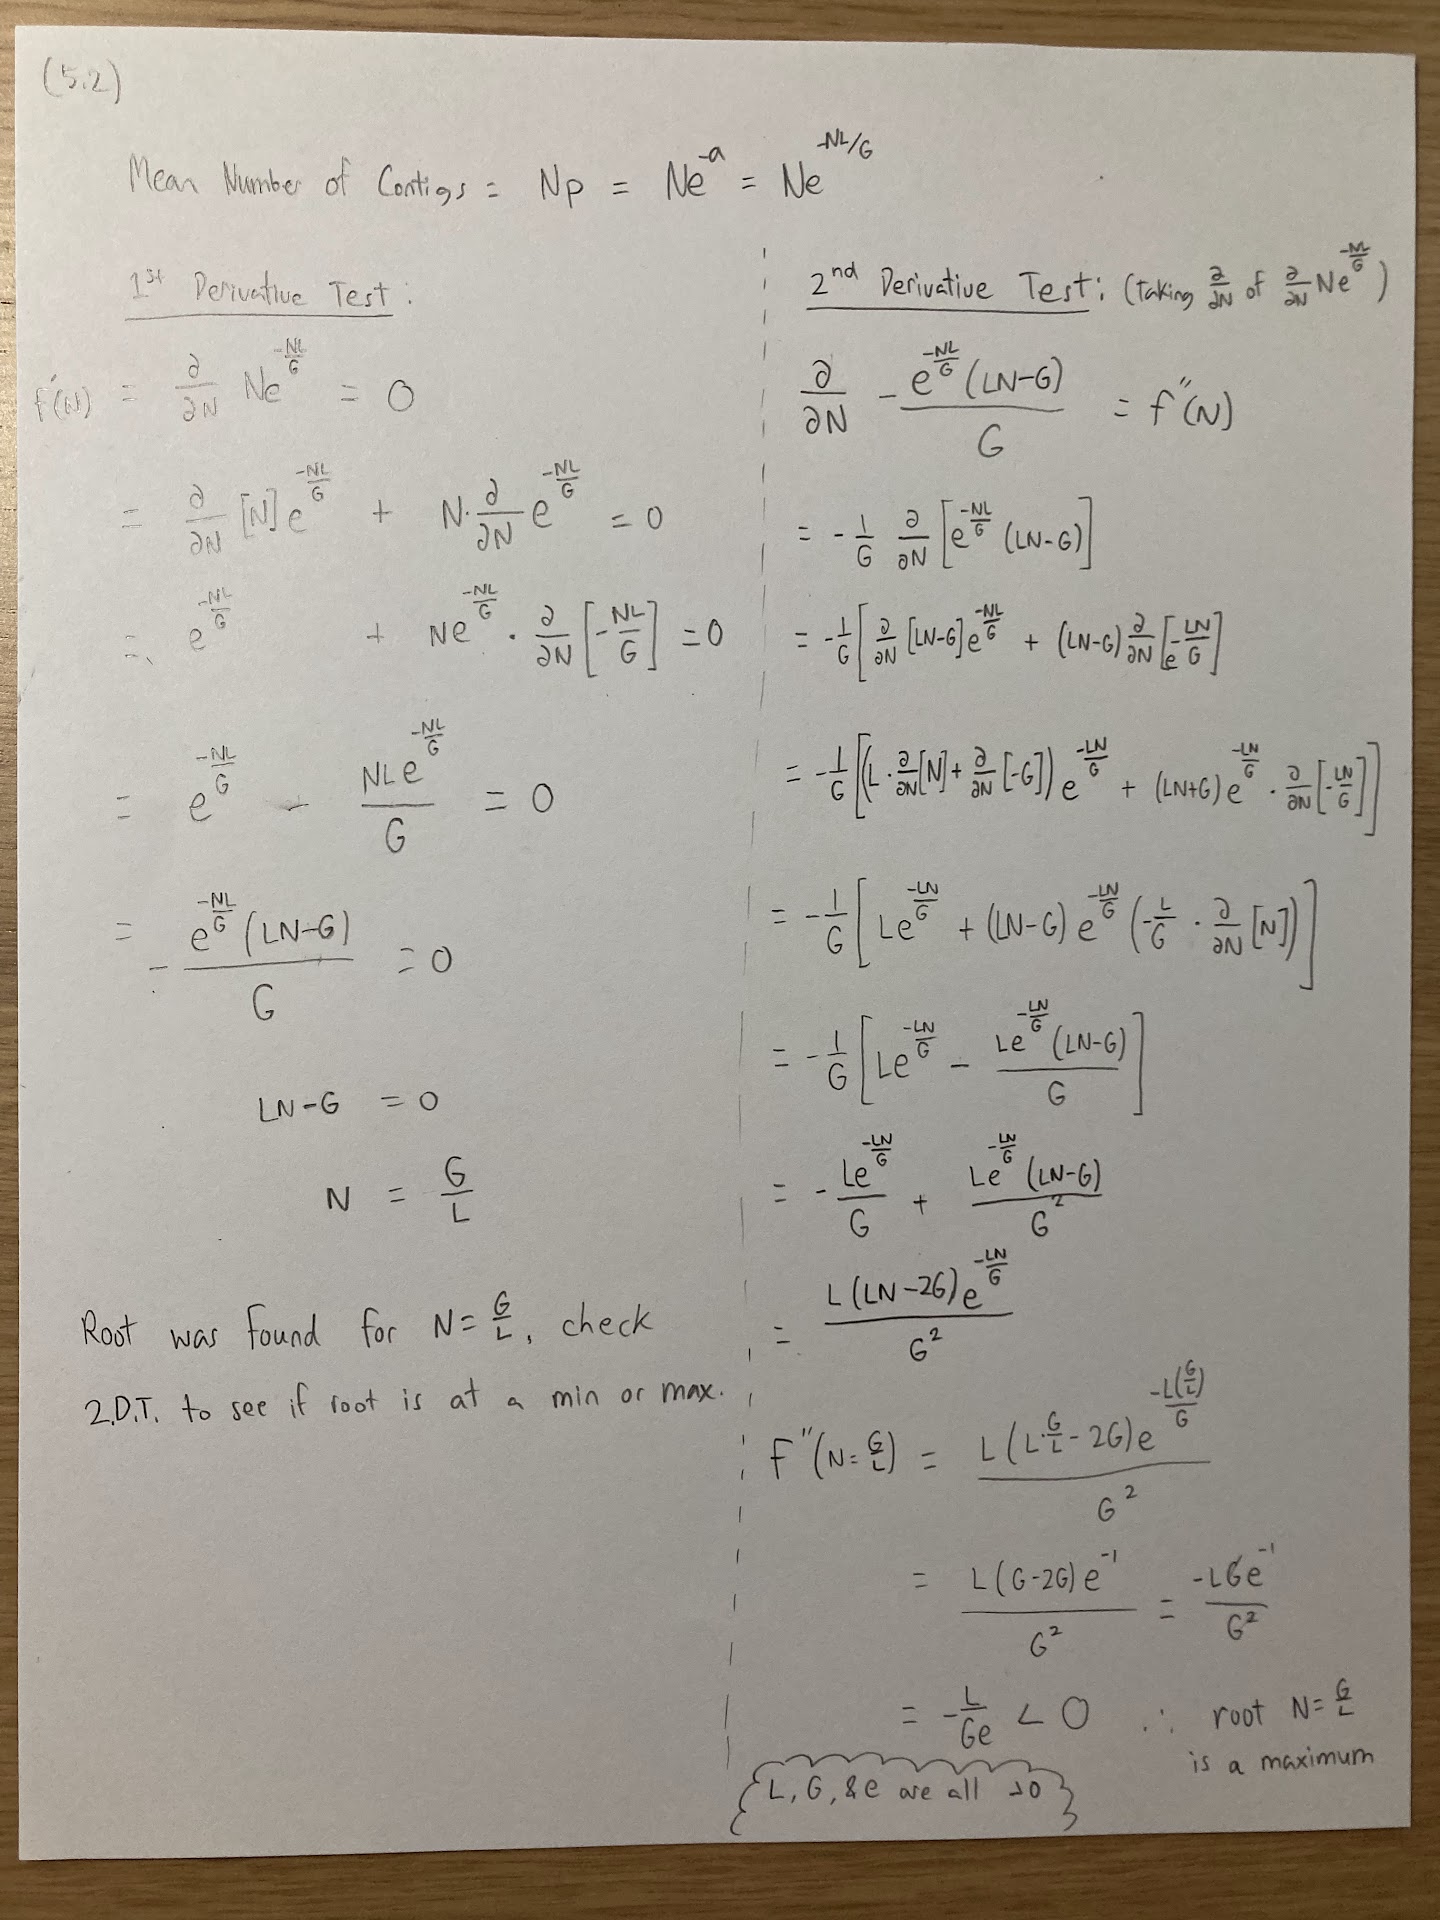 (5.2)
Mean Number of Contigs = Np = Ne^{-a} = Ne^{-NL/G}
1st Derivative Test:
f'(N) = ∂/∂N Ne^{-NL/G} = 0
= ∂/∂N [N] e^{-NL/G} + N · ∂/∂N e^{-NL/G} = 0
= e^{-NL/G} + Ne^{-NL/G} · ∂/∂N [-NL/G] = 0
= e^{-NL/G} - NLe^{-NL/G}/G = 0
= - e^{-NL/G} (LN-G)/G = 0
LN-G = 0
N = G/L
Root was found for N = G/L, check
2.D.T. to see if root is at a min or max.
2nd Derivative Test: (Taking ∂/∂N of ∂/∂N Ne^{-NL/G})
∂/∂N - e^{-NL/G} (LN-G)/G = f''(N)
= -1/G ∂/∂N [e^{-NL/G} (LN-G)]
= -1/G [∂/∂N [LN-G] e^{-NL/G} + (LN-G) ∂/∂N [e^{-LN/G}]
= -1/G [(L · ∂/∂N [N] + ∂/∂N [-G]) e^{-LN/G} + (LN+G) e^{-LN/G} · ∂/∂N [-LN/G]]
= -1/G [Le^{-LN/G} + (LN-G) e^{-LN/G} (-L/G · ∂/∂N [N])]
= -1/G [Le^{-LN/G} - Le^{-LN/G} (LN-G)/G]
= - Le^{-LN/G}/G + Le^{-LN/G} (LN-G)/G²
= L(LN-2G)e^{-LN/G}/G²
F''(N = G/L) = L(L·G/L - 2G)e^{-L(G/L)/G}/G²
= L(G-2G)e^{-1}/G² = -LGe^{-1}/G²
= -L/Ge < 0 ∴ root N = G/L
is a maximum
L, G, & e are all >0